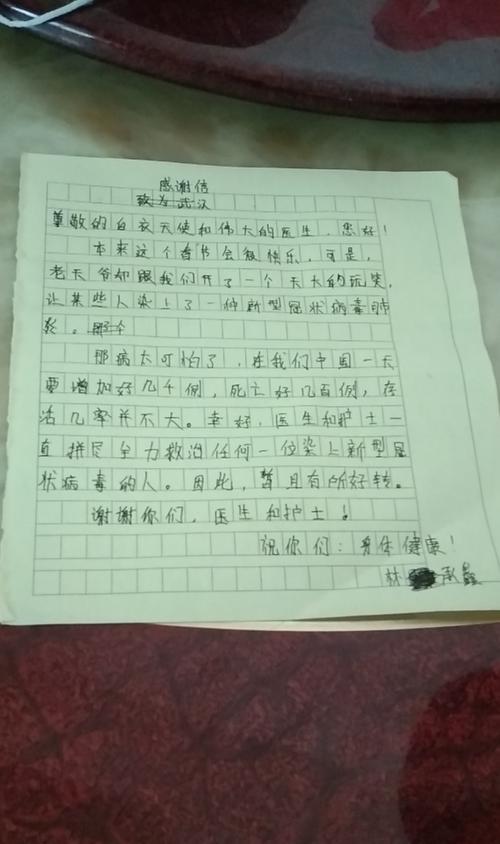 感谢信
致为武汉
尊敬的白衣天使和伟大的医生，您好！
本来这个春节会很快乐，可是，
老天爷却跟我们开了一个天大的玩笑，
让某些人染上了一种新型冠状病毒肺
炎。那个
那病太可怕了，在我们中国一天
要增加好几千例，死亡好几百例，存
活几率并不大。幸好，医生和护士一
直拼尽全力救治任何一位染上新型冠
状病毒的人。因此，暂且有所好转。
谢谢你们，医生和护士！
祝你们：身体健康！
林承鑫